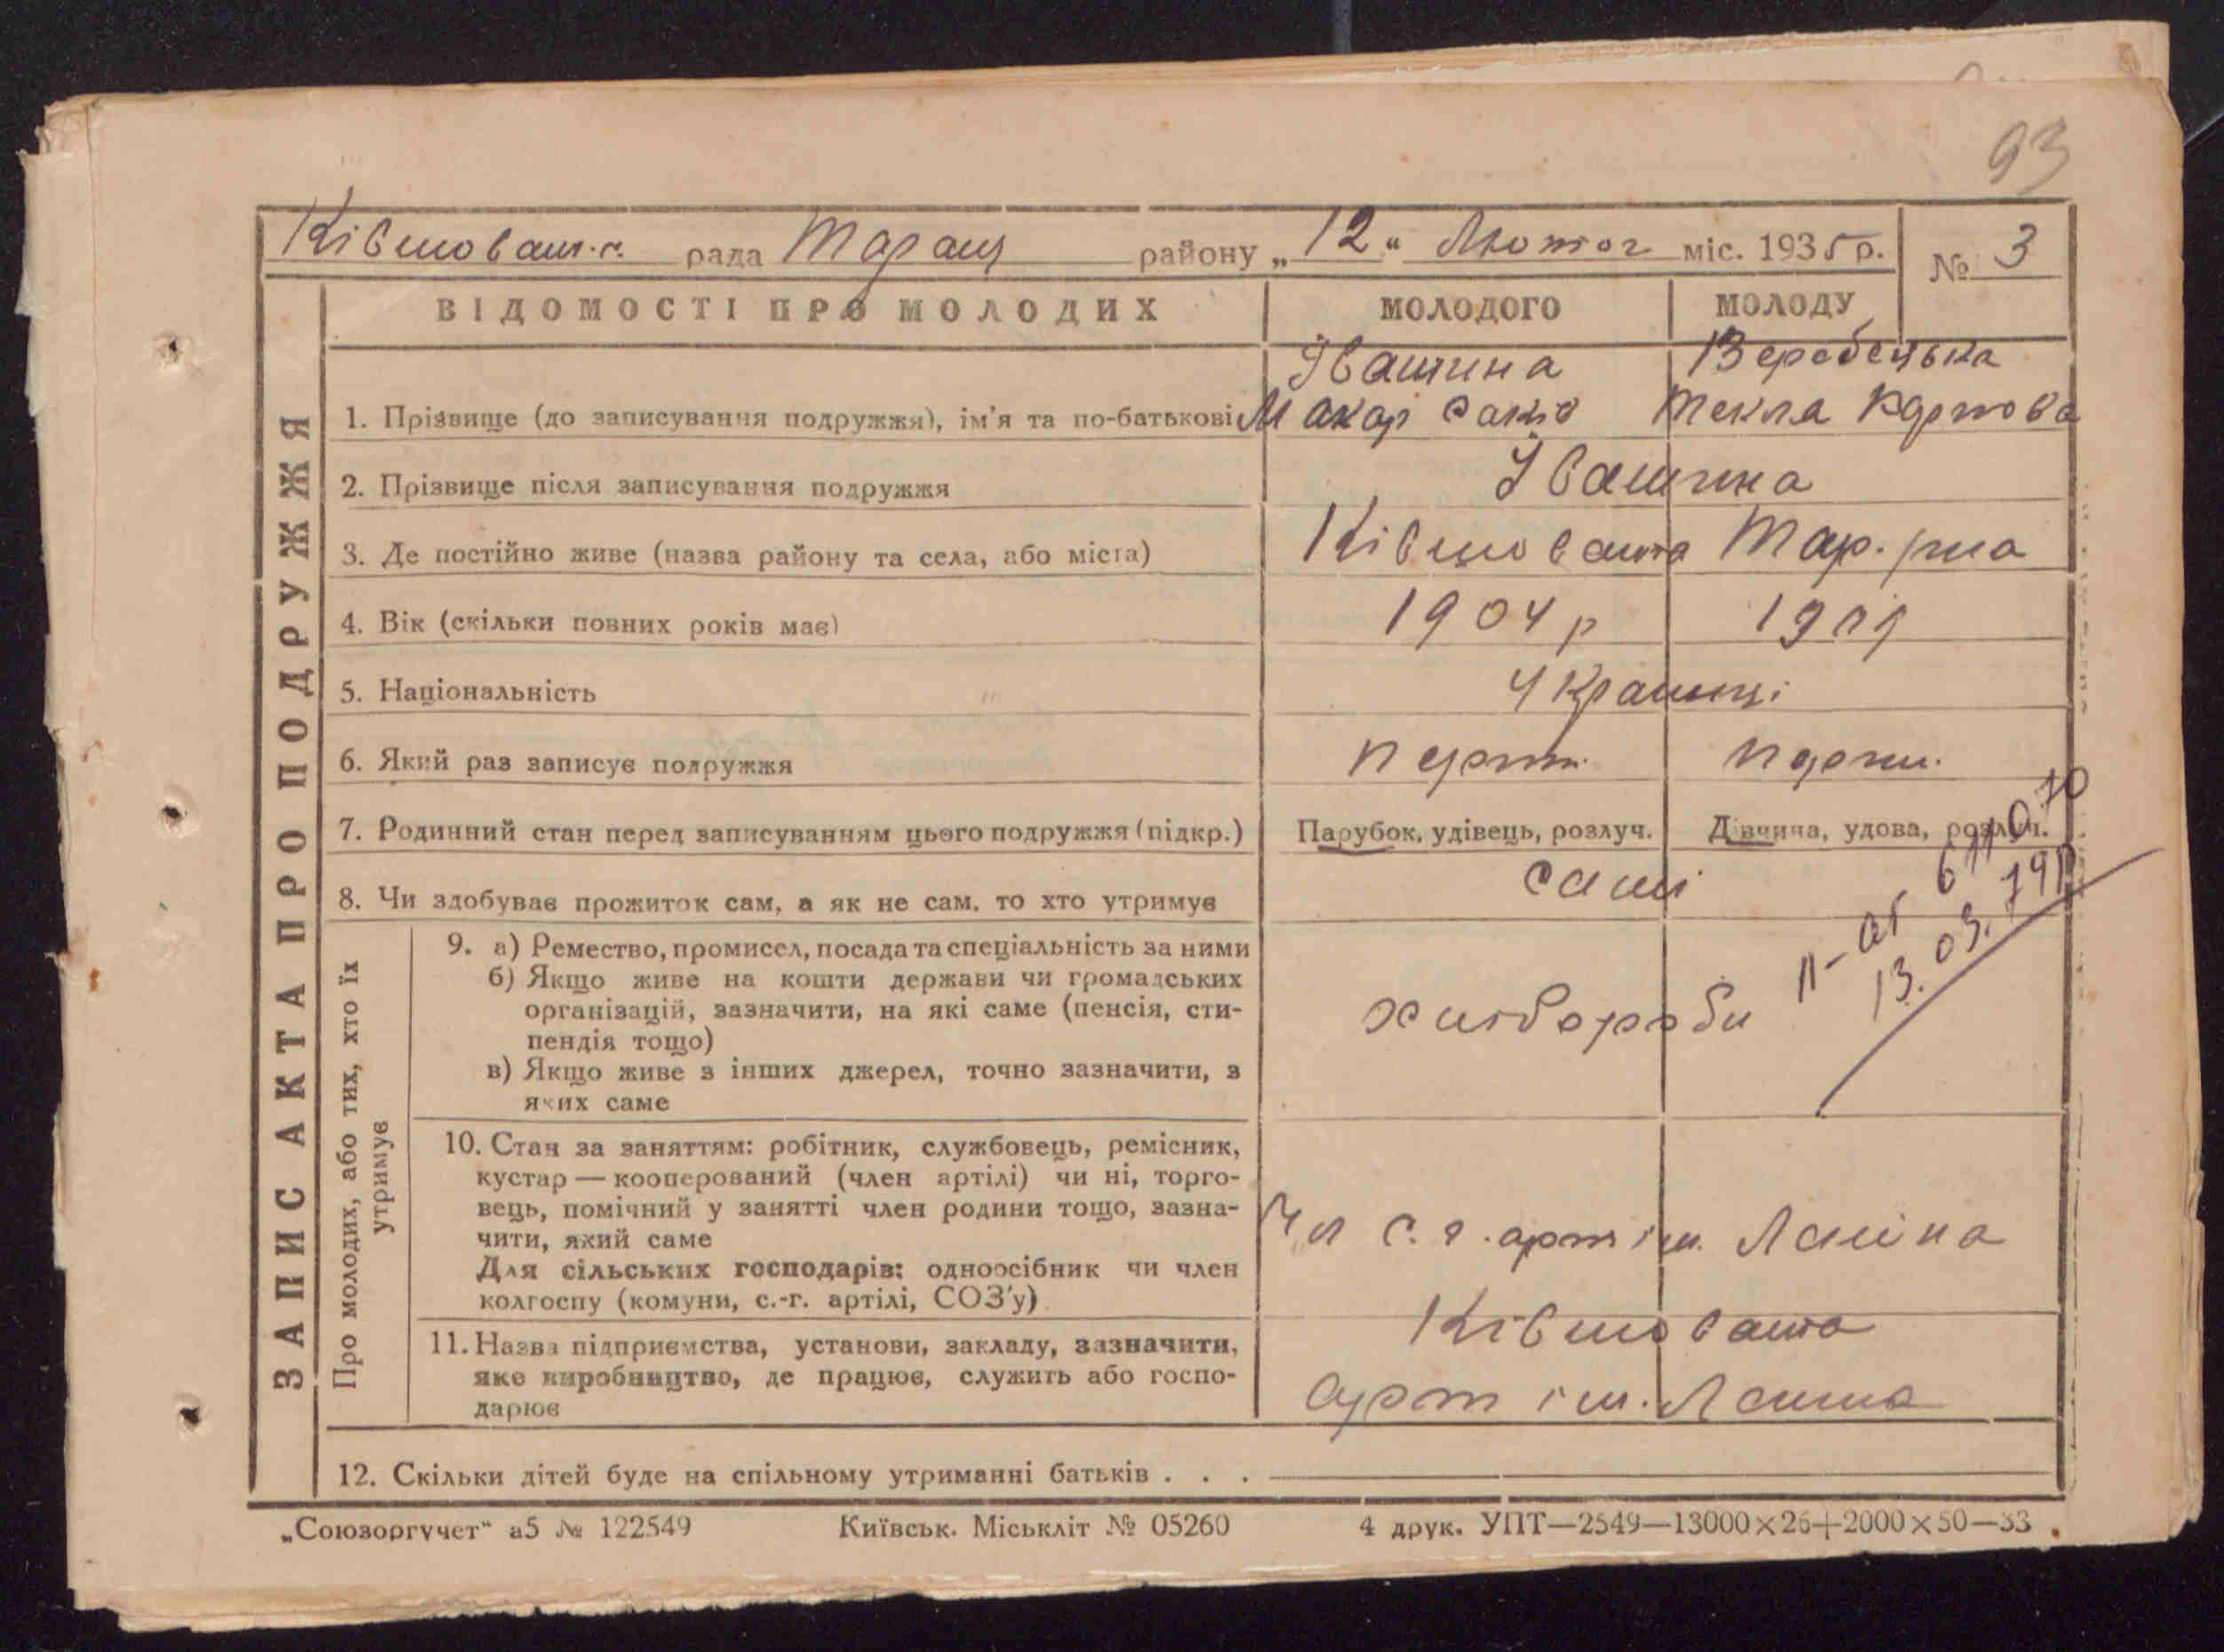 93
Ківшоват.с. рада Таращ району „12“ Лютог міс. 1935 р. № 3
ВІДОМОСТІ ПРО МОЛОДИХ МОЛОДОГО МОЛОДУ
Івашина
1. Прізвище (до записування подружжя), ім'я та по-батькові Макар
Текля
2. Прізвище після записування подружжя Івашина
3. Де постійно живе (назва району та села, або міста) Ківшовата Тар. р-на
4. Вік (скільки повних років має) 1904 р
5. Національність Українці
6. Який раз записує подружжя перш. перш.
7. Родинний стан перед записуванням цього подружжя (підкр.) Парубок, удівець, розлуч. Дівчина, удова, розлуч.
8. Чи здобуває прожиток сам, а як не сам, то хто утримує самі
9. а) Ремество, промисел, посада та спеціальність за ними
б) Якщо живе на кошти держави чи громадських
організацій, зазначити, на які саме (пенсія, сти-
пендія тощо)
хлібороби
в) Якщо живе з інших джерел, точно зазначити, з
яких саме
10. Стан за заняттям: робітник, службовець, ремісник,
кустар — кооперований (член артілі) чи ні, торго-
вець, помічний у занятті член родини тощо, зазна-
чити, який саме
Чл с.г. арт ім. Леніна
Для сільських господарів: одноосібник чи член
колгоспу (комуни, с.-г. артілі, СОЗ'у)
11. Назва підприємства, установи, закладу, зазначити,
яке виробництво, де працює, служить або госпо-
дарює
Ківшовата
Арт ім. Леніна
12. Скільки дітей буде на спільному утриманні батьків . . .
ЗАПИС АКТА ПРО ПОДРУЖЖЯ
Про молодих, або тих, хто їх
утримує
„Союзоргучет“ а5 № 122549 Київськ. Міськліт № 05260 4 друк. УПТ—2549—13000×26+2000×50—33